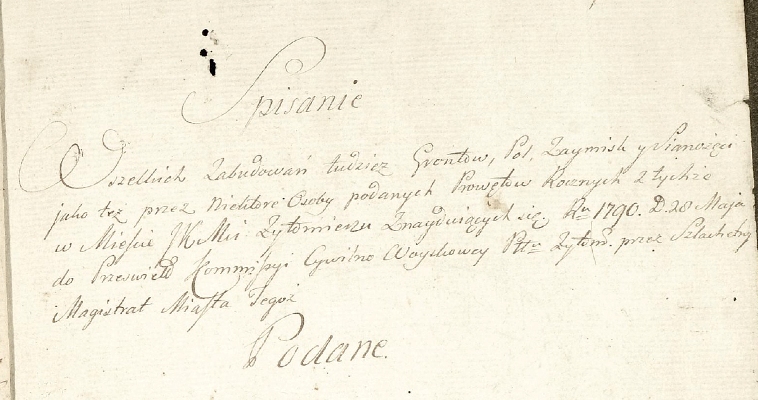 Spisanie
Wszelkich Zabudowań tudziez Grontow, Pol, Zaymisk y Sianozęci
jako też przez Niektore Osoby podanych Prowętow Rocznych z tychże
w Mieście JKMci Zytomierzu Znayduiących się. Ru 1790. D. 28 Maja
do Prześwietł Kommissyi Cywilno Woyskowey Pttu Zytom. przez Szlachetny
Magistrat Miasta Tegoż
Podane.